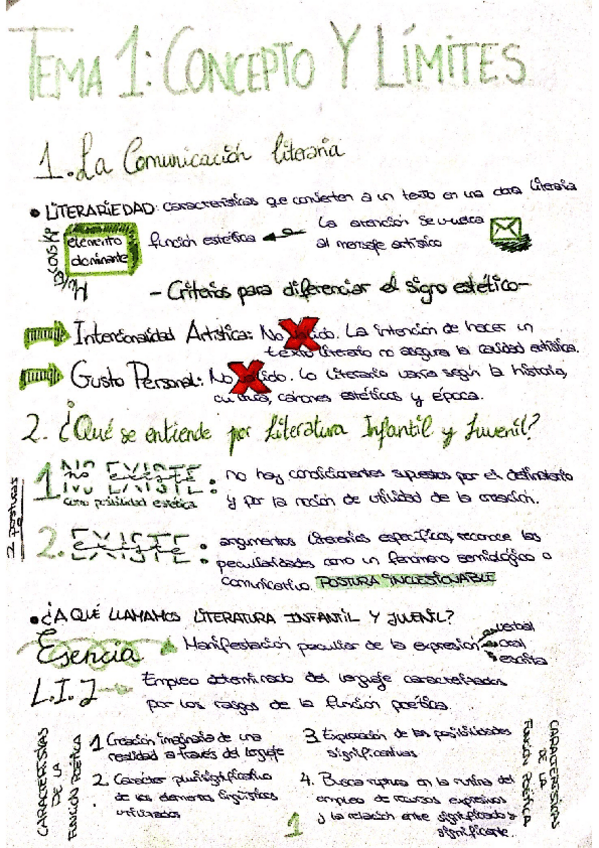 TEMA 1: CONCEPTO Y LÍMITES
1. La Comunicación literaria
• LITERARIEDAD: características que convierten a un texto en una obra literaria
elemento dominante
función estética
La atención se vuelca
al mensaje artístico
- Criterios para diferenciar el signo estético -
Intencionalidad Artística: No válido. La intención de hacer un
texto literario no asegura la calidad artística.
Gusto Personal: No válido. Lo literario varía según la historia,
cultura, cánones estéticos y época.
2. ¿Qué se entiende por Literatura Infantil y Juvenil?
2 posturas
1 NO EXISTE: no hay condicionantes supuestos por el destinatario
como posibilidad estética
y por la noción de utilidad de la creación.
2. EXISTE: argumentos literarios específicos, reconoce las
peculiaridades como un fenómeno semiológico o
comunicativo. POSTURA INCUESTIONABLE
• ¿A QUÉ LLAMAMOS LITERATURA INFANTIL Y JUVENIL?
Esencia
Manifestación peculiar de la expresión
verbal
oral
escrita
L.I.J
Empleo determinado del lenguaje caracterizados
por los rasgos de la función poética.
CARACTERÍSTICAS DE LA FUNCIÓN POÉTICA
1 Creación imaginaria de una
realidad a través del lenguaje
2. Carácter plurisignificativo
de los elementos lingüísticos
utilizados
3. Exploración de las posibilidades
significativas
4. Busca ruptura en la rutina del
empleo de recursos expresivos
y la relación entre significado y
significante.
CARACTERÍSTICAS DE LA FUNCIÓN POÉTICA
1